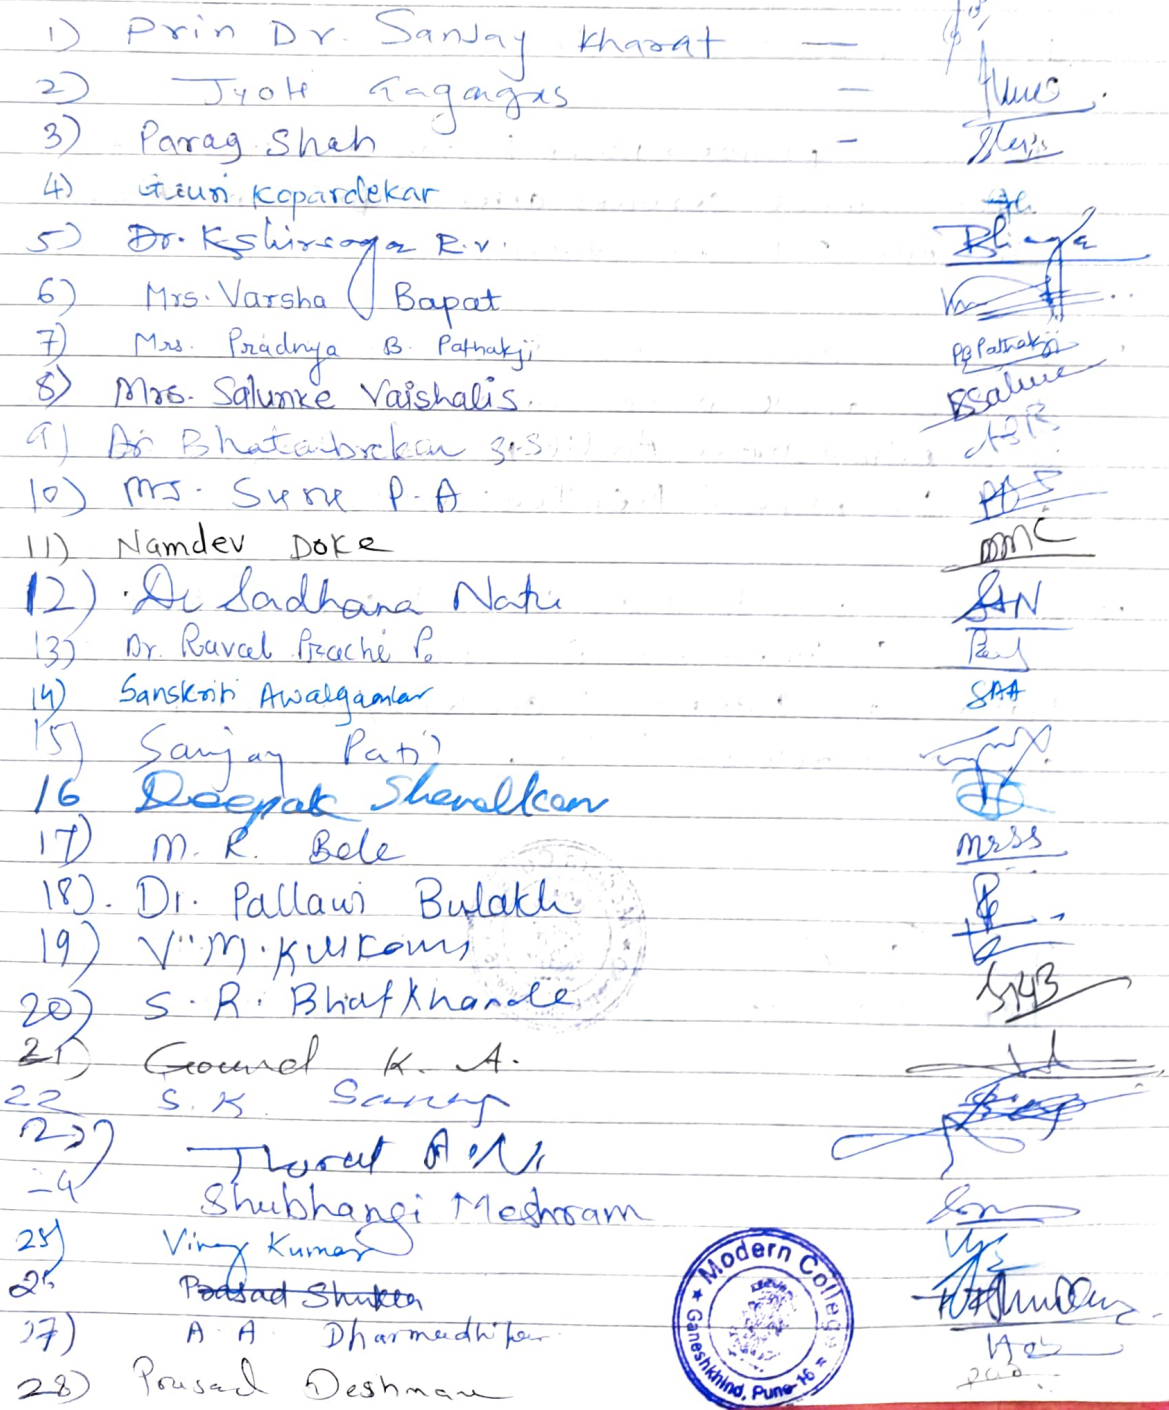 1) Prin Dr. Sanjay Kharat —
2) Jyoti Gagangras —
3) Parag Shah -
4) Gauri Kopardekar
5) Dr. Kshirsagar R.V.
6) Mrs. Varsha Bapat
7) Mrs. Pradnya B. Pathakji PBPathakji
8) Mrs. Salunke Vaishali S. BSalune
9) Dr
10) Ms. P.A
11) Namdev Doke
12) Dr Sadhana Natu SAN
13) Dr. Raval Prachi P.
14) Sanskriti Awalgaonkar SAA
15) Sanjay Patil
16 Deepak Shendkar
17) M. R. Bele
18). Dr. Pallawi Bulakh
19) V.M. Kulkarni
20) S. R. Bhatkhande
21) K. A.
22 S. K.
23) Thorat A.N.
24 Shubhangi Meshram
25) Vinay Kumar
26 Prasad Shukla
27) A. A. Dharmadhikari
28) Prasad Deshmane
★ Modern College ★ Ganeshkhind, Pune-16